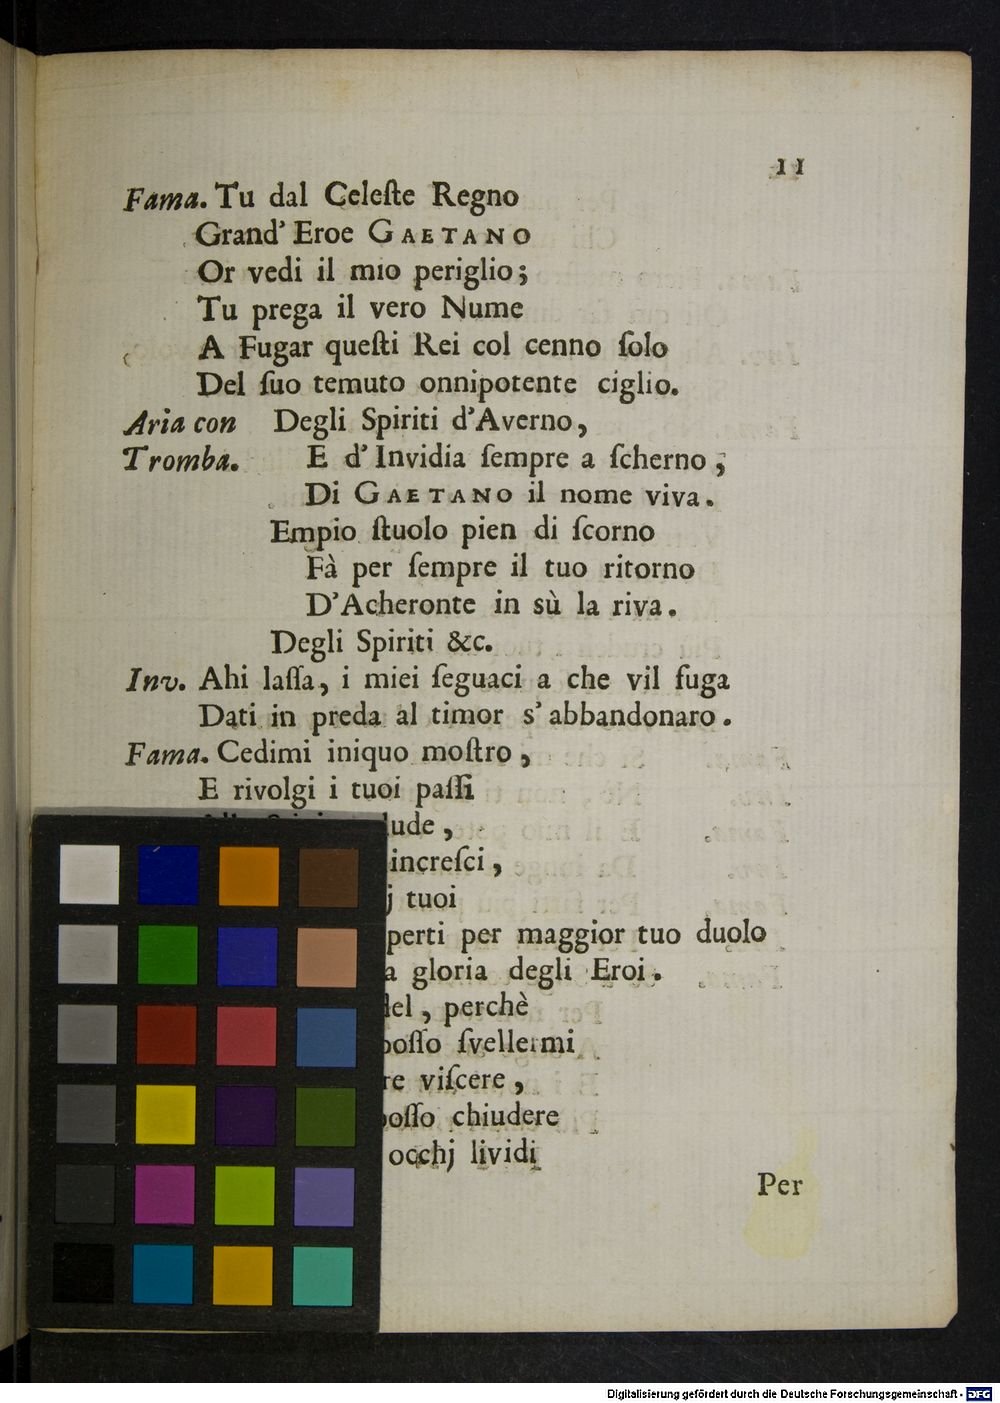 11
Fama. Tu dal Celeſte Regno
Grand' Eroe GAETANO
Or vedi il mio periglio;
Tu prega il vero Nume
A Fugar queſti Rei col cenno ſolo
Del ſuo temuto onnipotente ciglio.
Aria con Degli Spiriti d'Averno,
Tromba. E d'Invidia ſempre a ſcherno;
Di GAETANO il nome viva.
Empio ſtuolo pien di ſcorno
Fà per ſempre il tuo ritorno
D'Acheronte in sù la riva.
Degli Spiriti &c.
Inv. Ahi laſſa, i miei ſeguaci a che vil fuga
Dati in preda al timor s'abbandonaro.
Fama. Cedimi iniquo moſtro,
E rivolgi i tuoi paſſi
lude,
increſci,
j tuoi
perti per maggior tuo duolo
a gloria degli Eroi.
del, perchè
poſſo ſvellermi
re viſcere,
poſſo chiudere
occhj lividi
Per
Digitalisierung gefördert durch die Deutsche Forschungsgemeinschaft - DFG